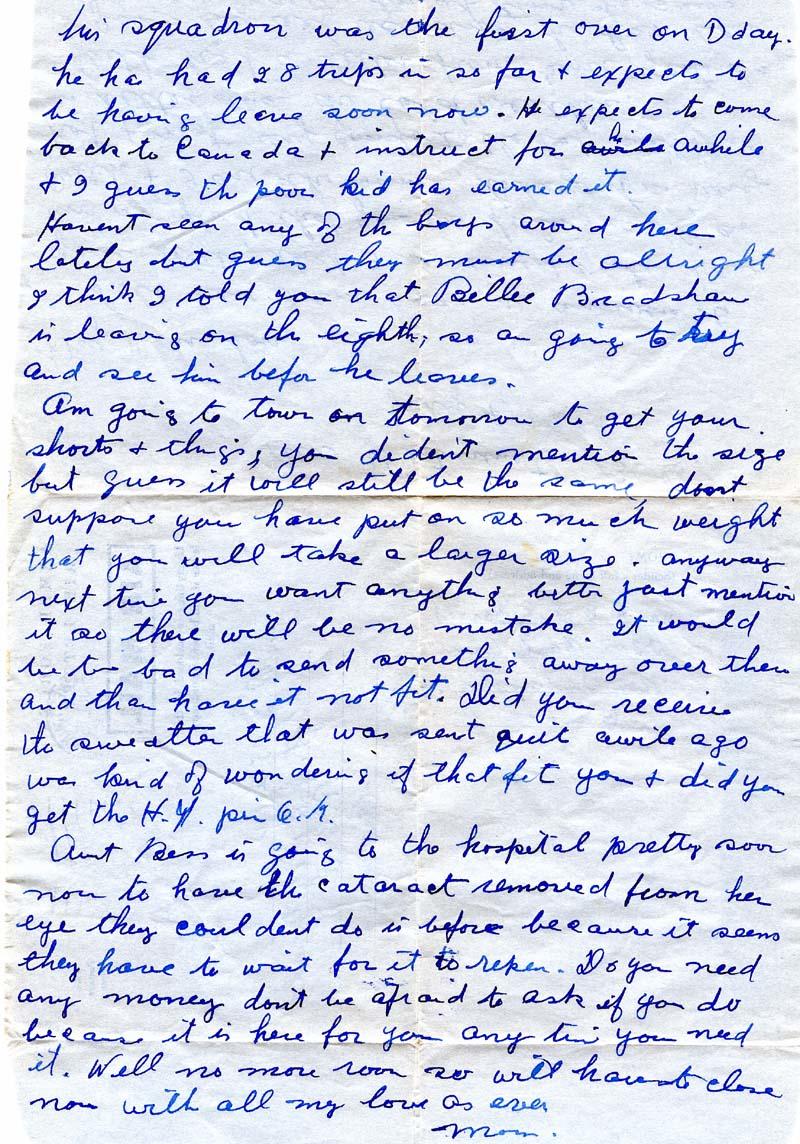 his squadron was the first over on D day.
he ha had 28 trips in so far + expects to
be having leave soon now. He expects to come
back to Canada + instruct for awhile
+ I guess the poor kid has earned it.
Havent seen any of th boys around here
lately but guess they must be allright
I think I told you that Billee Bradshaw
is leaving on the eighth, so am going to try
and see him before he leaves.
Am going to town on tomorrow to get your
shorts + things, you diden't mention the size
but guess it will still be the same, dont
suppose you have put on so much weight
that you will take a larger size. anyway
next time you want anything better just mention
it so there will be no mistake. It would
be too bad to send something away over there
and than have it not fit. Did you receive
the sweatter that was sent quit awile ago
was kind of wondering if that fit you + did you
get the H.Y. pin O.K.
Aunt Bess is going to the hospital pretty soon
now to have the cataract removed from her
eye they couldent do is before because it seems
they have to wait for it to ripen. Do you need
any money don't be afraid to ask if you do
because it is here for you any time you need
it. Well no more room so will have to close
now with all my love as ever
Mom.